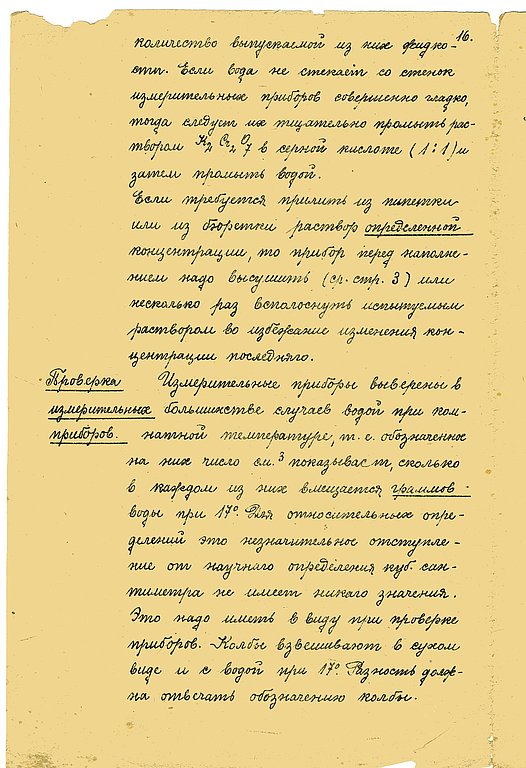 16.
количество выпускаемой из них жидко-
сти. Если вода не стекает со стенок
измерительных приборов совершенно гладко,
тогда следует их тщательно промыть рас-
твором K2 Cr2 O7 в серной кислоте (1:1) и
затем промыть водой.
Если требуется прилить из пипетки
или из бюретки раствор определенной
концентрации, то прибор перед наполне-
нием надо высушить (ср. стр. 3) или
несколько раз всполоснуть испытуемым
раствором во избежание изменения кон-
центрации последняго.
Проверка Измерительные приборы выверены в
измерительных большинстве случаев водой при ком-
приборов. натной температуре, т. е. обозначенное
на них число см.3 показывает, сколько
в каждом из них вмещается граммов
воды при 17°. Для относительных опре-
делений это незначительное отступле-
ние от научнаго определения куб. сан-
тиметра не имеет никаго значения.
Это надо иметь в виду при проверке
приборов. Колбы взвешивают в сухом
виде и с водой при 17°. Разность долж-
на отвечать обозначению колбы.